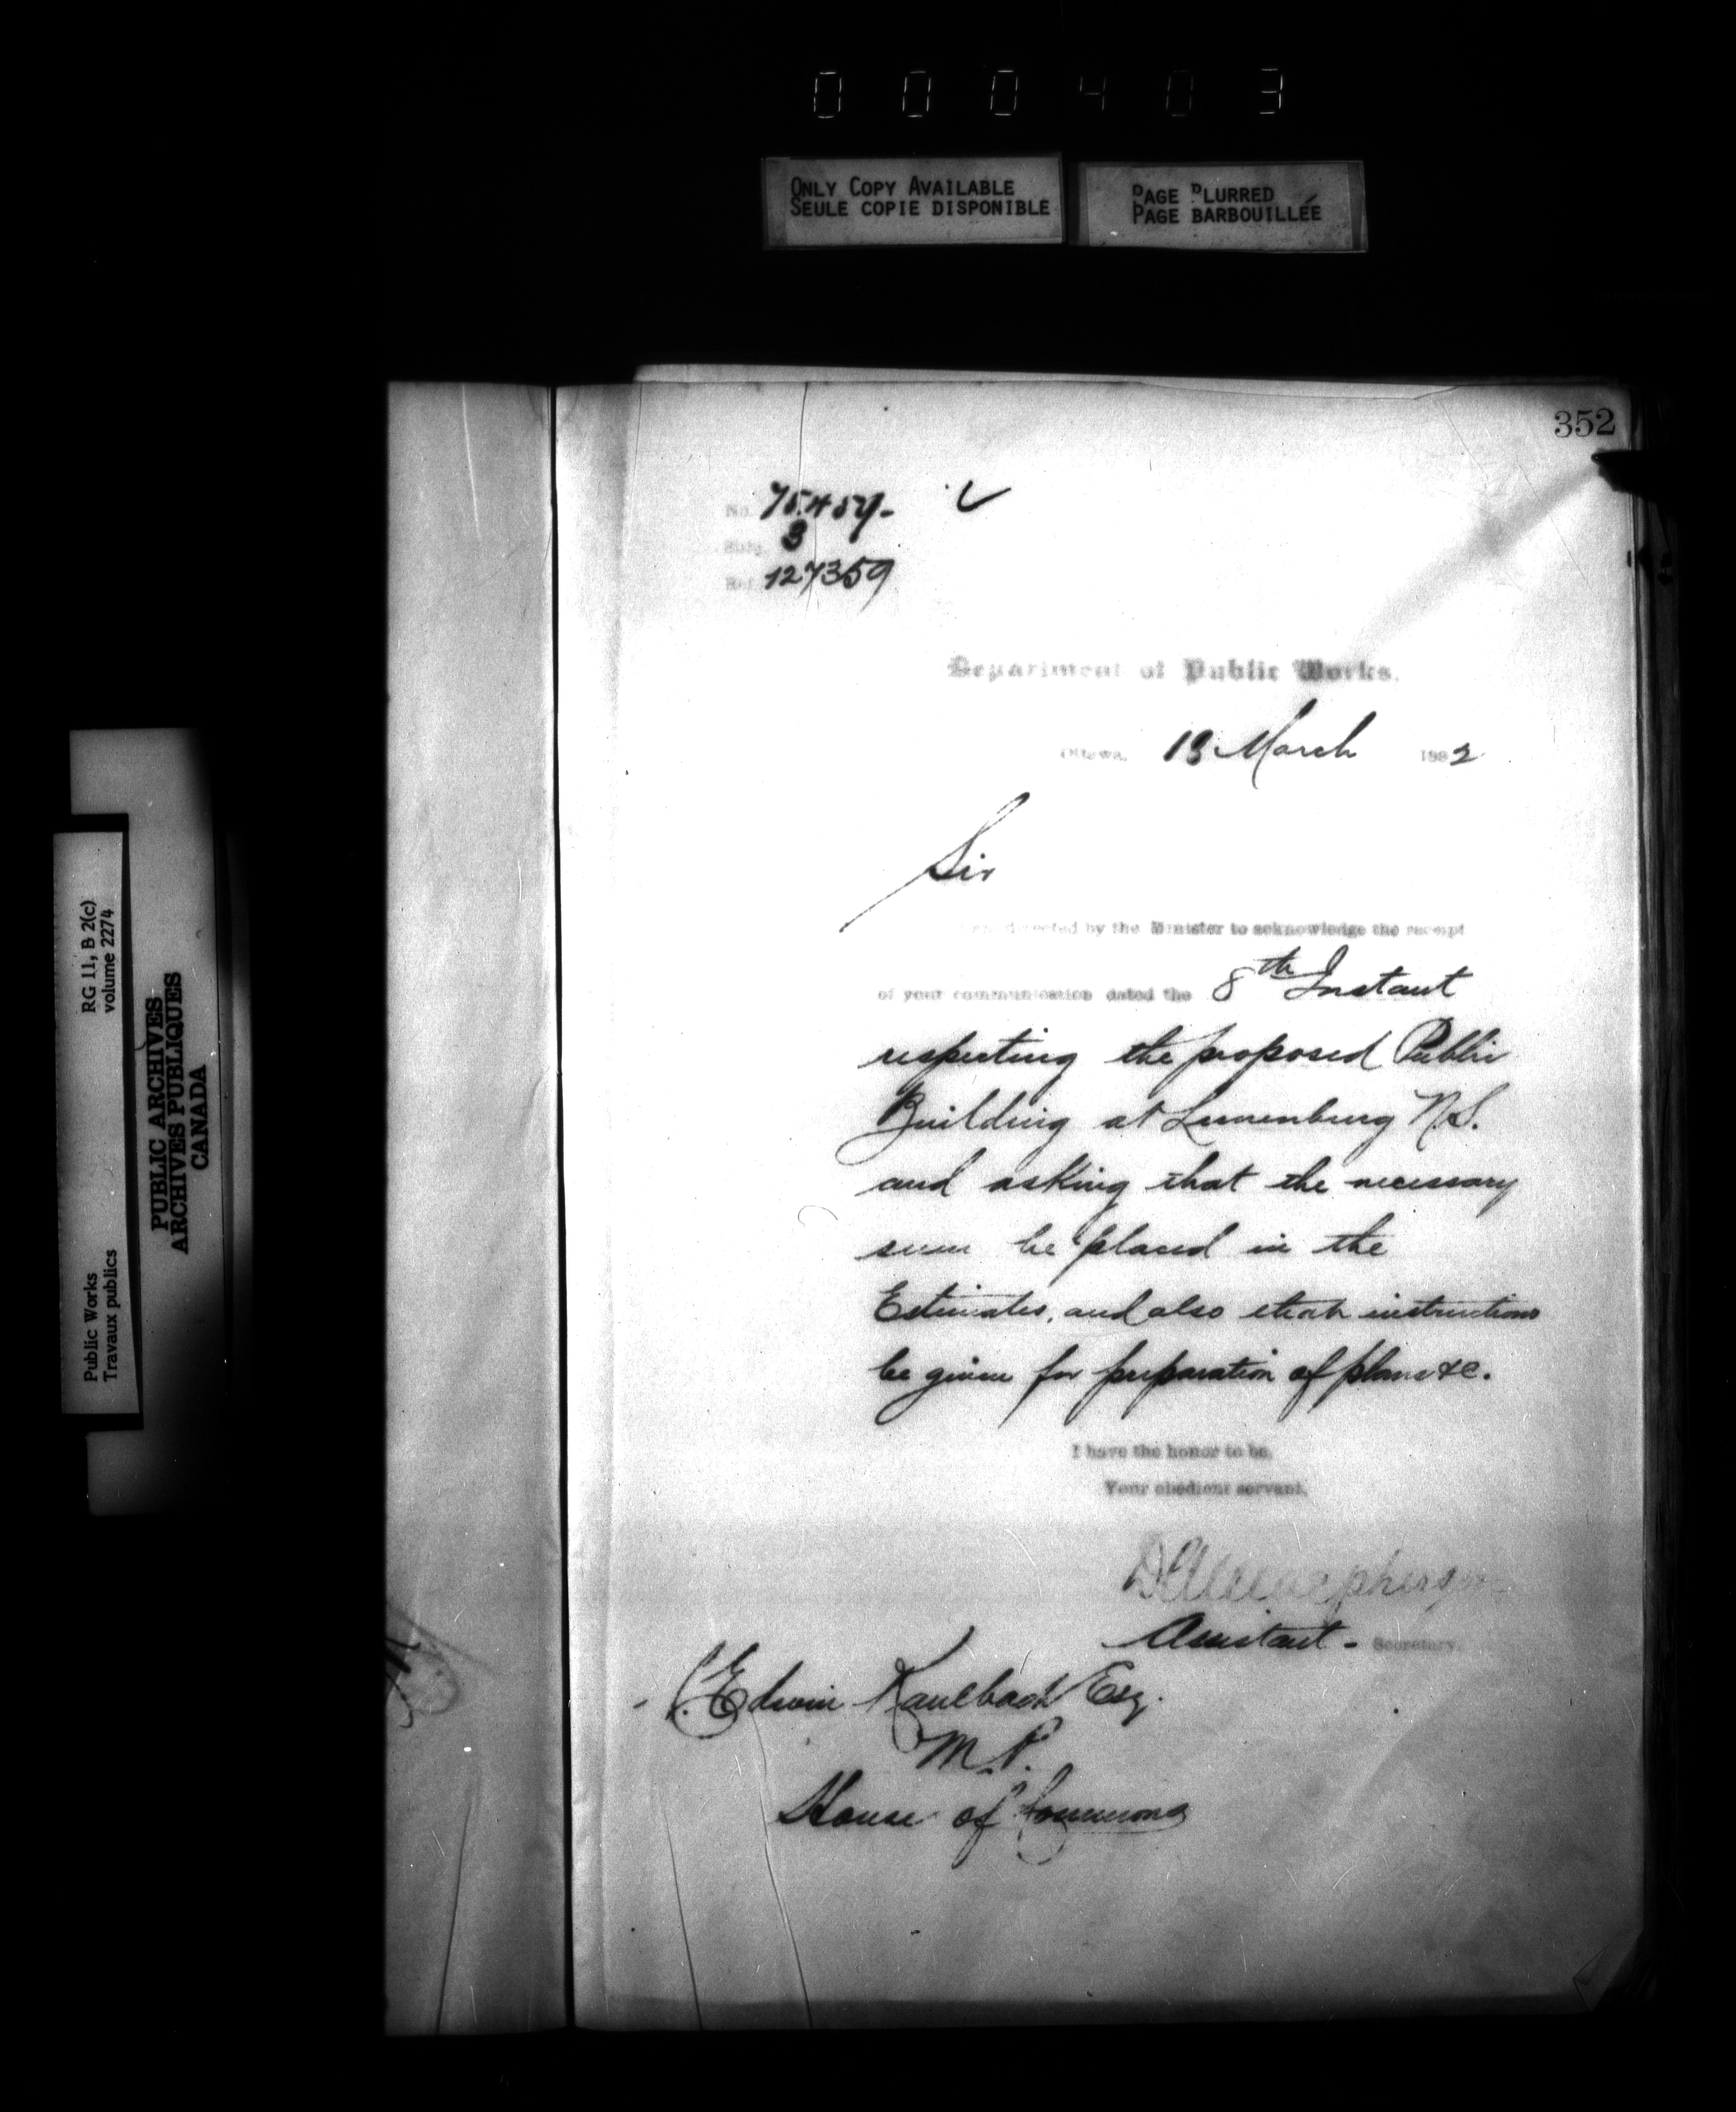 000403
ONLY COPY AVAILABLE
SEULE COPIE DISPONIBLE
PAGE BLURRED
PAGE BARBOUILLÉE
352
No. 75.457-
Subj. 3
Ref. 127359
Department of Public Works.
Ottawa, 13 March 1882
Sir
I am directed by the Minister to acknowledge the receipt
of your communication dated the 8th Instant
respecting the proposed Public
Building at Lunenburg N.S.
and asking that the necessary
sum be placed in the
Estimates, and also that instructions
be given for preparation of plans &c.
I have the honor to be,
Your obedient servant,
Macpherson
Assistant - Secretary.
C. Edwin Kaulbach Esq.
M.P.
House of Commons
RG 11, B 2(c)
volume 2274
Public Works
Travaux publics
PUBLIC ARCHIVES
ARCHIVES PUBLIQUES
CANADA